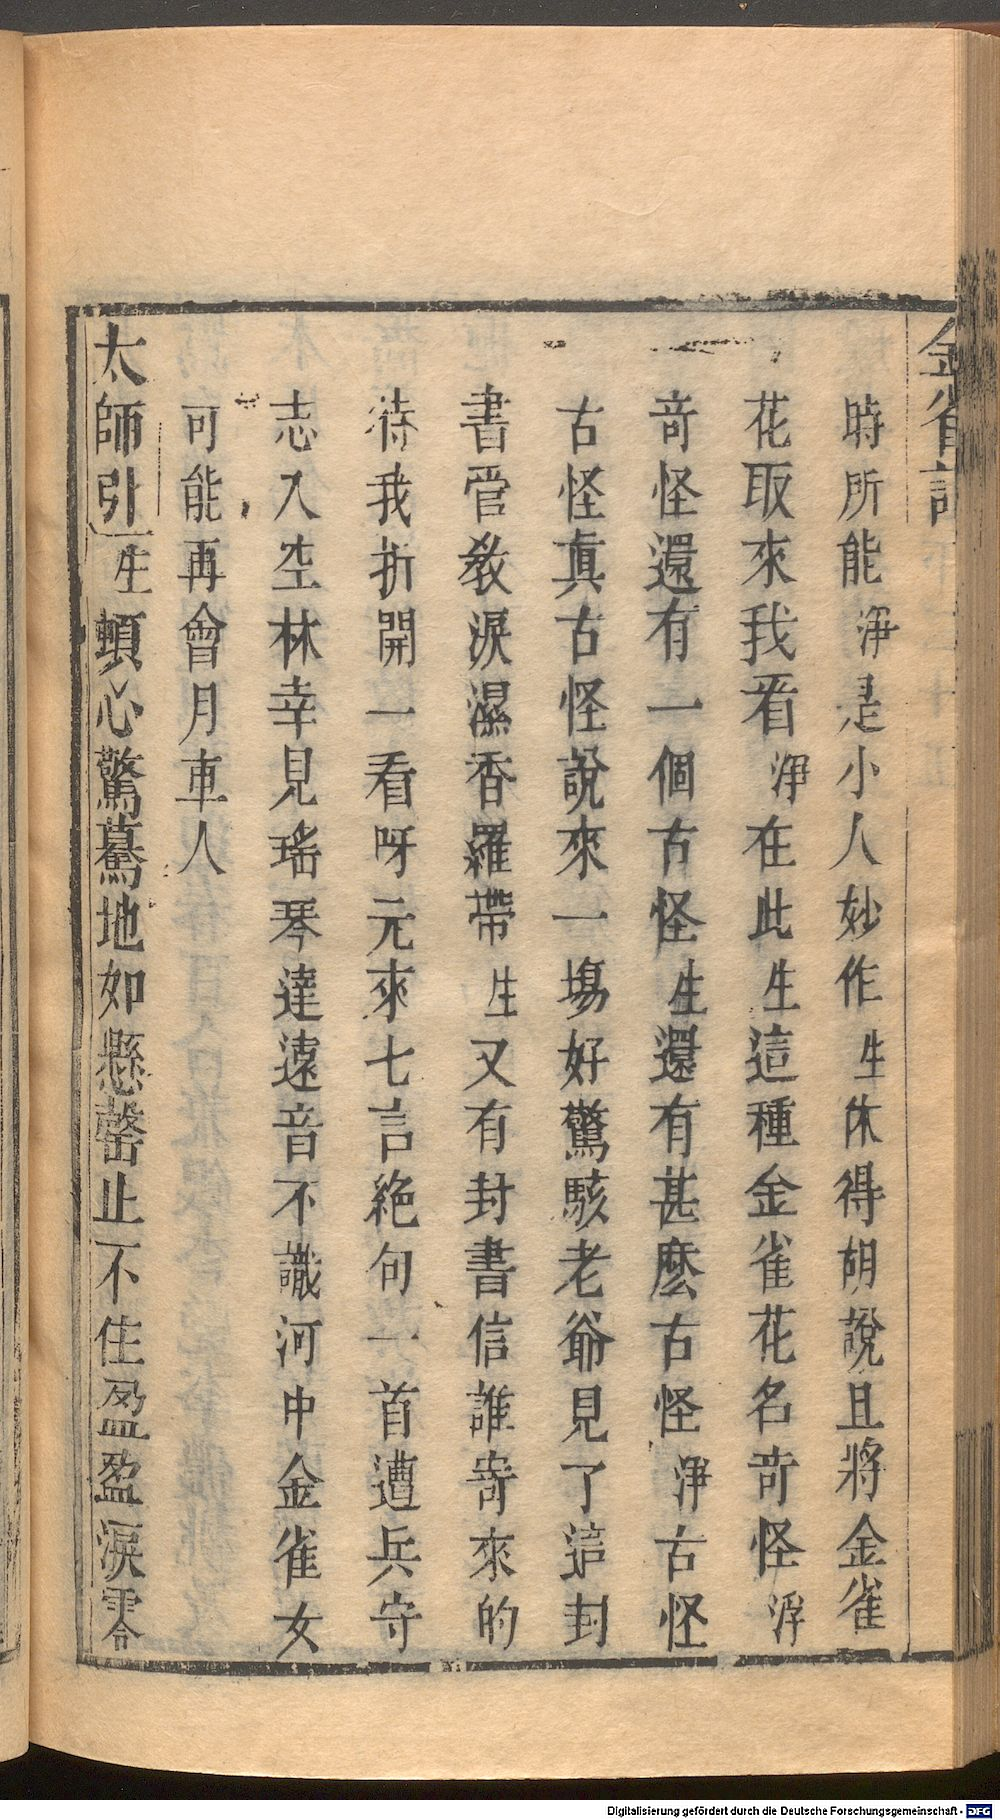 金雀記
時所能淨是小人妙作生休得胡說且將金雀
花取來我看淨在此生這種金雀花名竒怪淨
竒怪還有一個古怪生還有甚麽古怪淨古怪
古怪真古怪說來一塲好驚駭老爺見了這封
書管教淚濕香羅帶生又有封書信誰寄來的
待我折開一看呀元來七言絶句一首遭兵守
志入空林幸見瑤琴達遠音不識河中金雀女
可能再會月車人
太師引生頓心驚驀地如懸罄止不住盈盈淚零
Digitalisierung gefördert durch die Deutsche Forschungsgemeinschaft - DFG